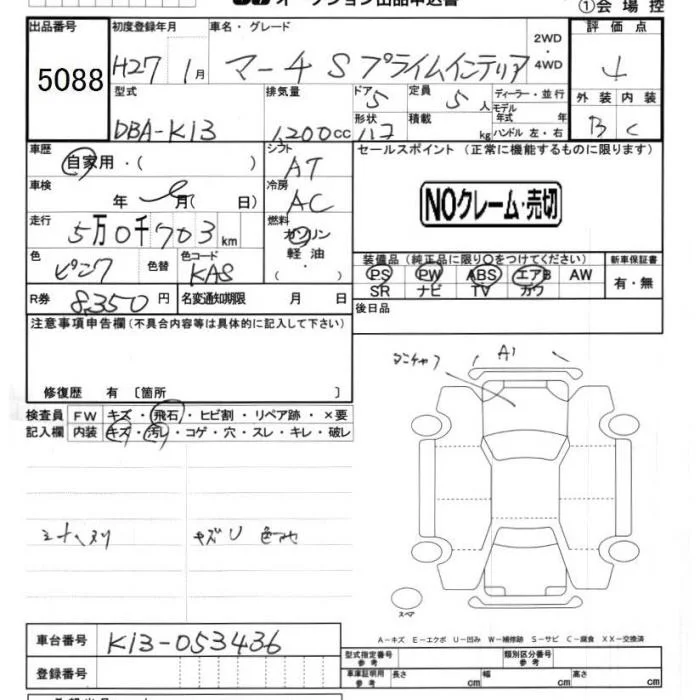 オークション出品申込書
①会場控
出品番号 初度登録年月 車名・グレード 評価点
5088 H27 1月 マーチ S プライムインテリア 2WD・4WD 4
型式 排気量 ドア 定員 ディーラー・並行 外装 内装
DBA-K13 1200cc 5 5人 モデル年式 年 B C
形状 積載 kg ハンドル 左・右
車歴 シフト セールスポイント (正常に機能するものに限ります)
自家用・( ) AT
車検 冷房
年 月( 日) AC NOクレーム・売切
走行 燃料
5万0千703km ガソリン
軽油・( )
色 色替 色コード 装備品(純正品に限り○をつけてください) 新車保証書
ピンク KAS PS PW ABS エアB AW 有・無
SR ナビ TV カワ
R券 8,350円 名変通知期限 月 日 後日品
注意事項申告欄(不具合内容等は具体的に記入して下さい)
A1
修復歴 有 〔箇所 〕
検査員 FW キズ・飛石・ヒビ割・リペア跡・×要
記入欄 内装 キズ・汚レ・コゲ・穴・スレ・キレ・破レ
キズU
スペア
A-キズ E-エクボ U-凹み W-補修跡 S-サビ C-腐食 XX-交換済
車台番号 K13-053436
型式指定番号参考 類別区分番号参考
登録番号 車庫証明用参考 長さ cm 幅 cm 高さ cm